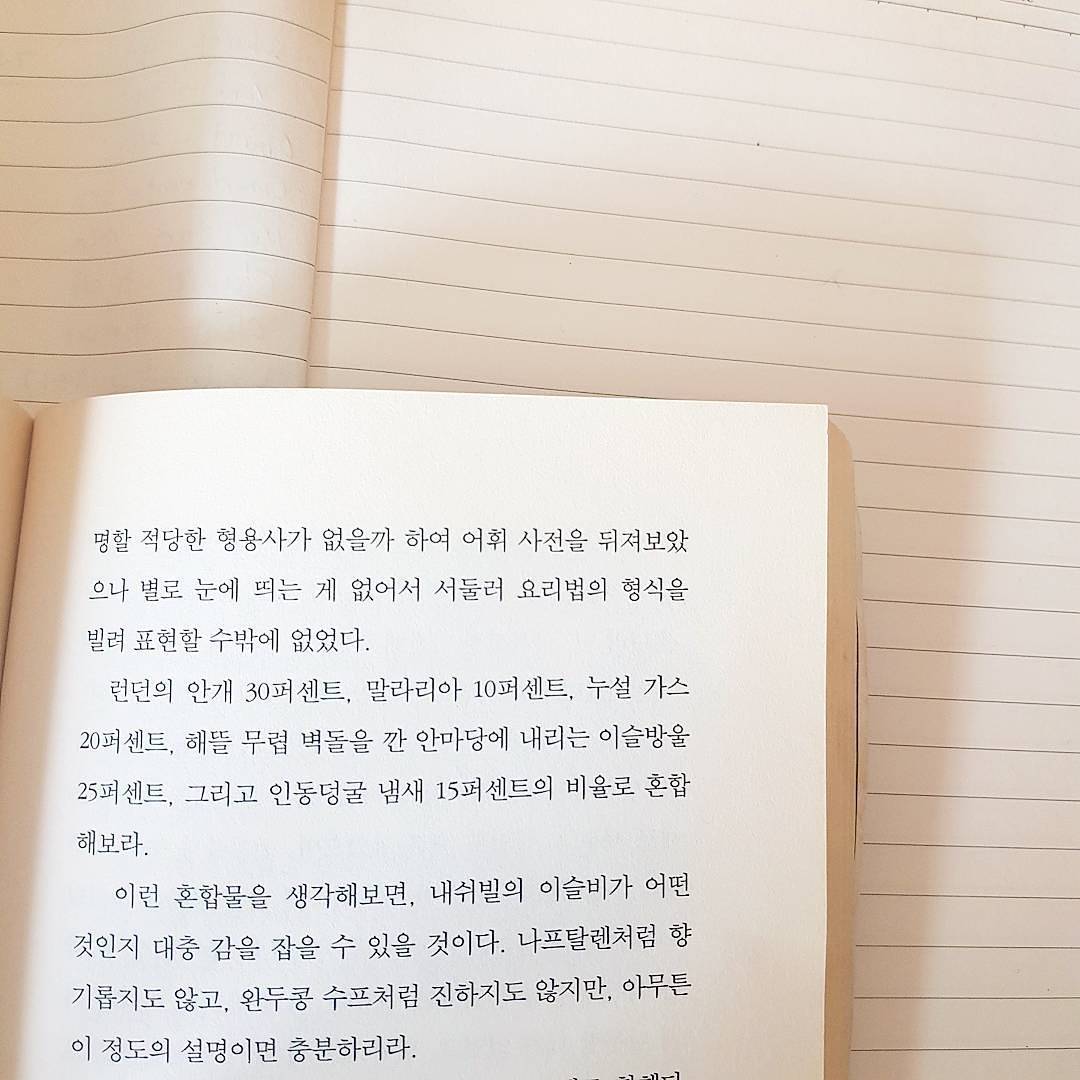 명할 적당한 형용사가 없을까 하여 어휘 사전을 뒤져보았
으나 별로 눈에 띄는 게 없어서 서둘러 요리법의 형식을
빌려 표현할 수밖에 없었다.
런던의 안개 30퍼센트, 말라리아 10퍼센트, 누설 가스
20퍼센트, 해뜰 무렵 벽돌을 깐 안마당에 내리는 이슬방울
25퍼센트, 그리고 인동덩굴 냄새 15퍼센트의 비율로 혼합
해보라.
이런 혼합물을 생각해보면, 내쉬빌의 이슬비가 어떤
것인지 대충 감을 잡을 수 있을 것이다. 나프탈렌처럼 향
기롭지도 않고, 완두콩 수프처럼 진하지도 않지만, 아무튼
이 정도의 설명이면 충분하리라.